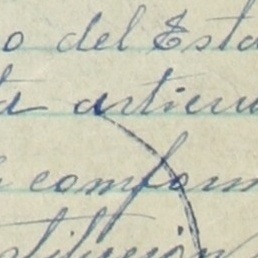 o del Esta
ta articu
conform
stitución